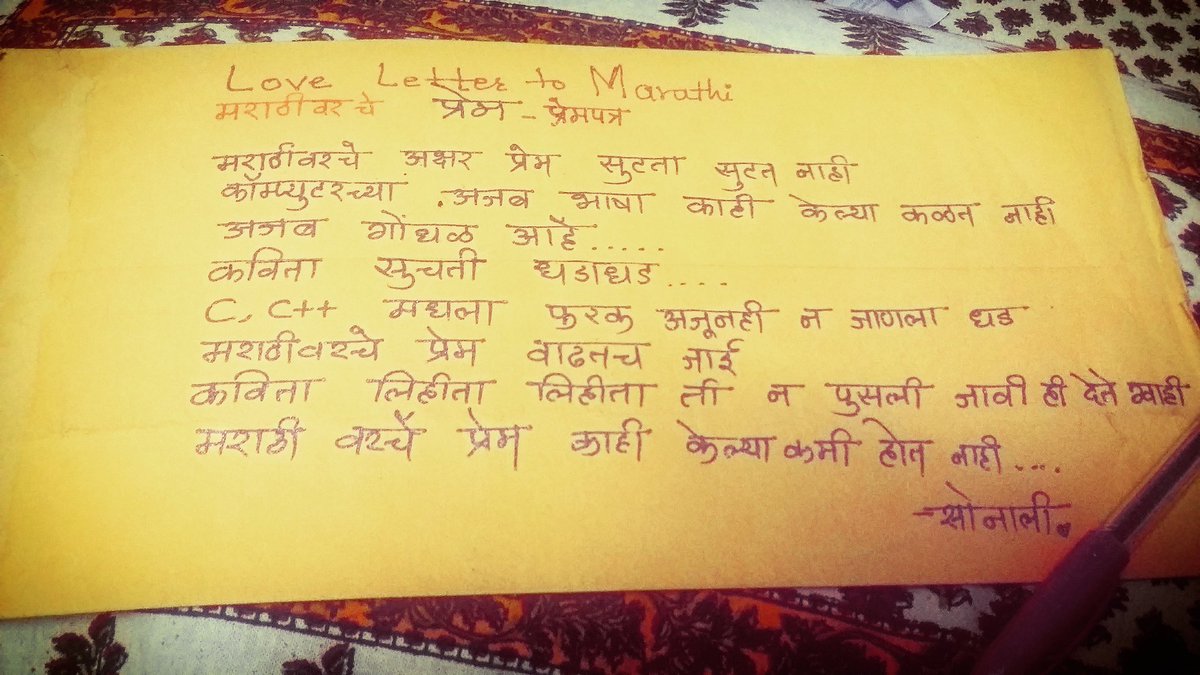 Love Letter to Marathi
मराठीवरचे प्रेम - प्रेमपत्र
मराठीवरचे अक्षर प्रेम सुटता सुटत नाही
कॉम्प्युटरच्या . अजब भाषा काही केल्या कळत नाही
अजब गोंधळ आहे.....
कविता सुचती धडाधड....
C, C++ मधला फुरक अजूनही न जाणला धड
मराठीवरचे प्रेम वाढतच जाई
कविता लिहीता लिहीता ती न पुसली जावी ही देते ग्वाही
मराठी वरचे प्रेम काही केल्या कमी होत नाही....
-सोनाली.